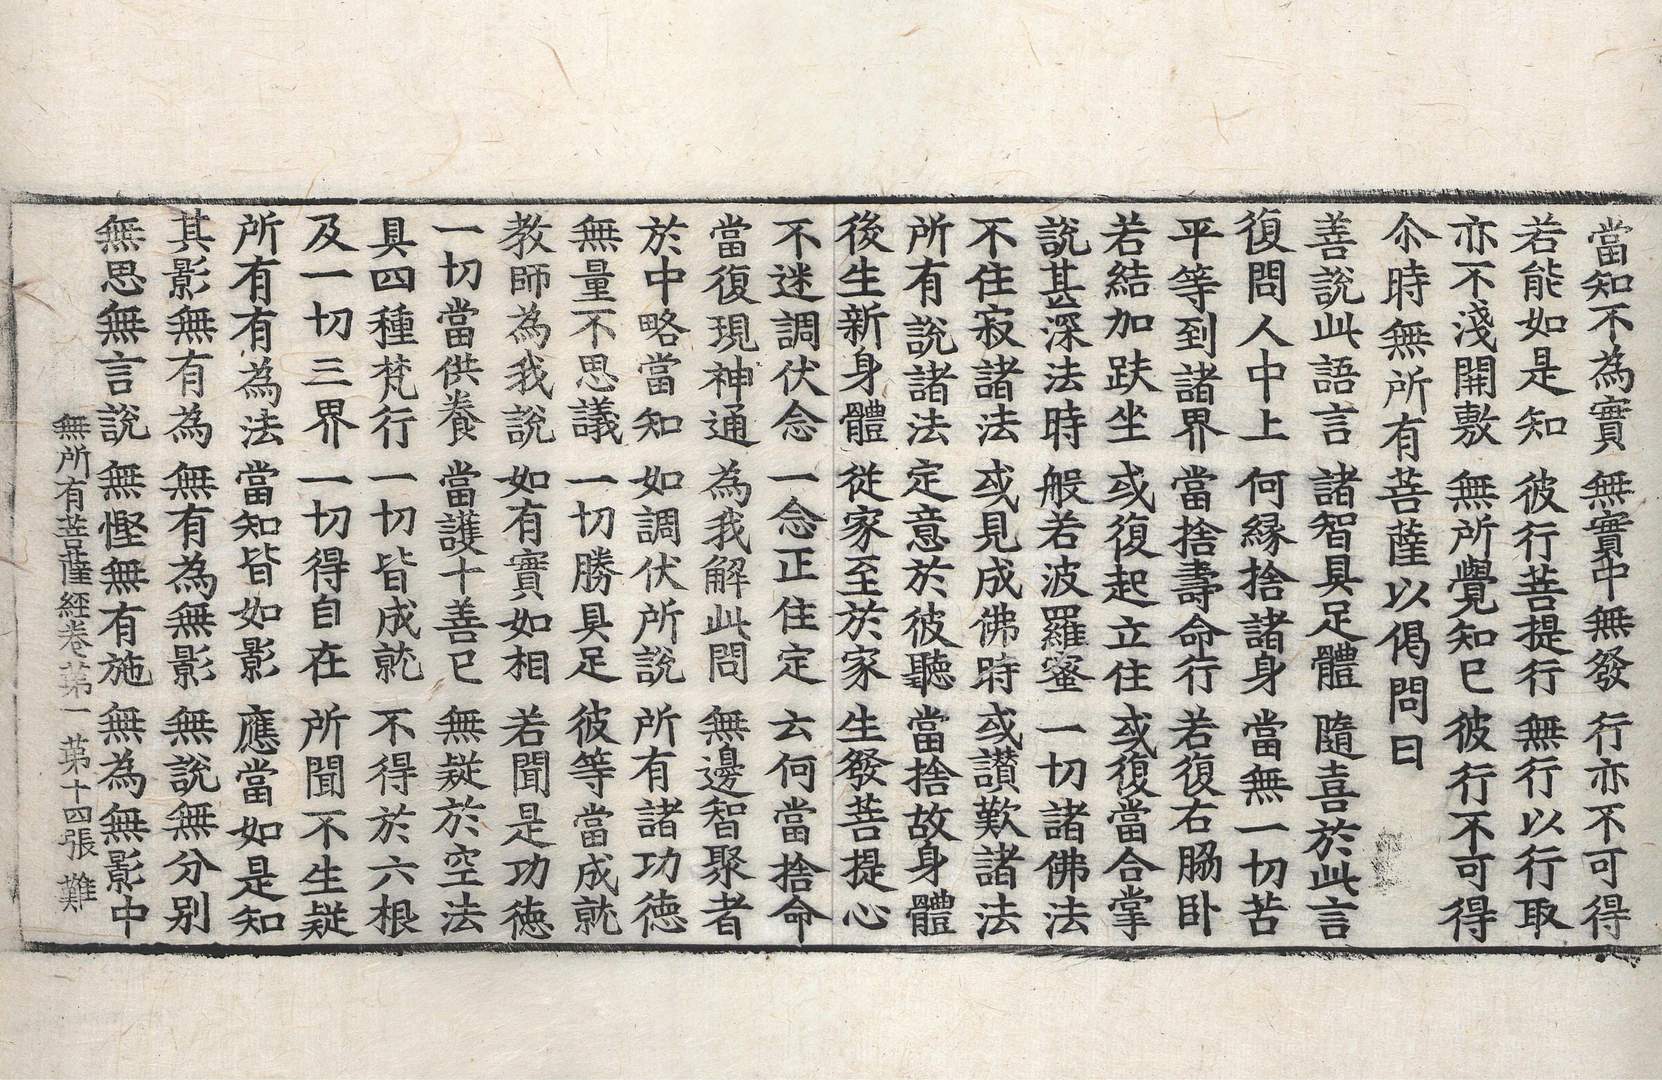 當知不為實 無實中無發 行亦不可得
若能如是知 彼行菩提行 無行以行取
亦不淺開敷 無所覺知已 彼行不可得
尒時無所有菩薩以偈問曰
善說此語言 諸智具足體 隨喜於此言
復問人中上 何緣捨諸身 當無一切苦
平等到諸界 當捨壽命行 若復右脇卧
若結加趺坐 或復起立住 或復當合掌
說甚深法時 般若波羅蜜 一切諸佛法
不住寂諸法 或見成佛時 或讃歎諸法
所有說諸法 定意於彼聽 當捨故身體
後生新身體 從家至於家 生發菩提心
不迷調伏念 一念正住定 云何當捨命
當復現神通 為我解此問 無邊智聚者
於中略當知 如調伏所說 所有諸功德
無量不思議 一切勝具足 彼等當成就
教師為我說 如有實如相 若聞是功德
一切當供養 當護十善已 無疑於空法
具四種梵行 一切皆成就 不得於六根
及一切三界 一切得自在 所聞不生疑
所有有為法 當知皆如影 應當如是知
其影無有為 無有為無影 無說無分別
無思無言說 無慳無有施 無為無影中
無所有菩薩經卷苐一 苐十四張 難